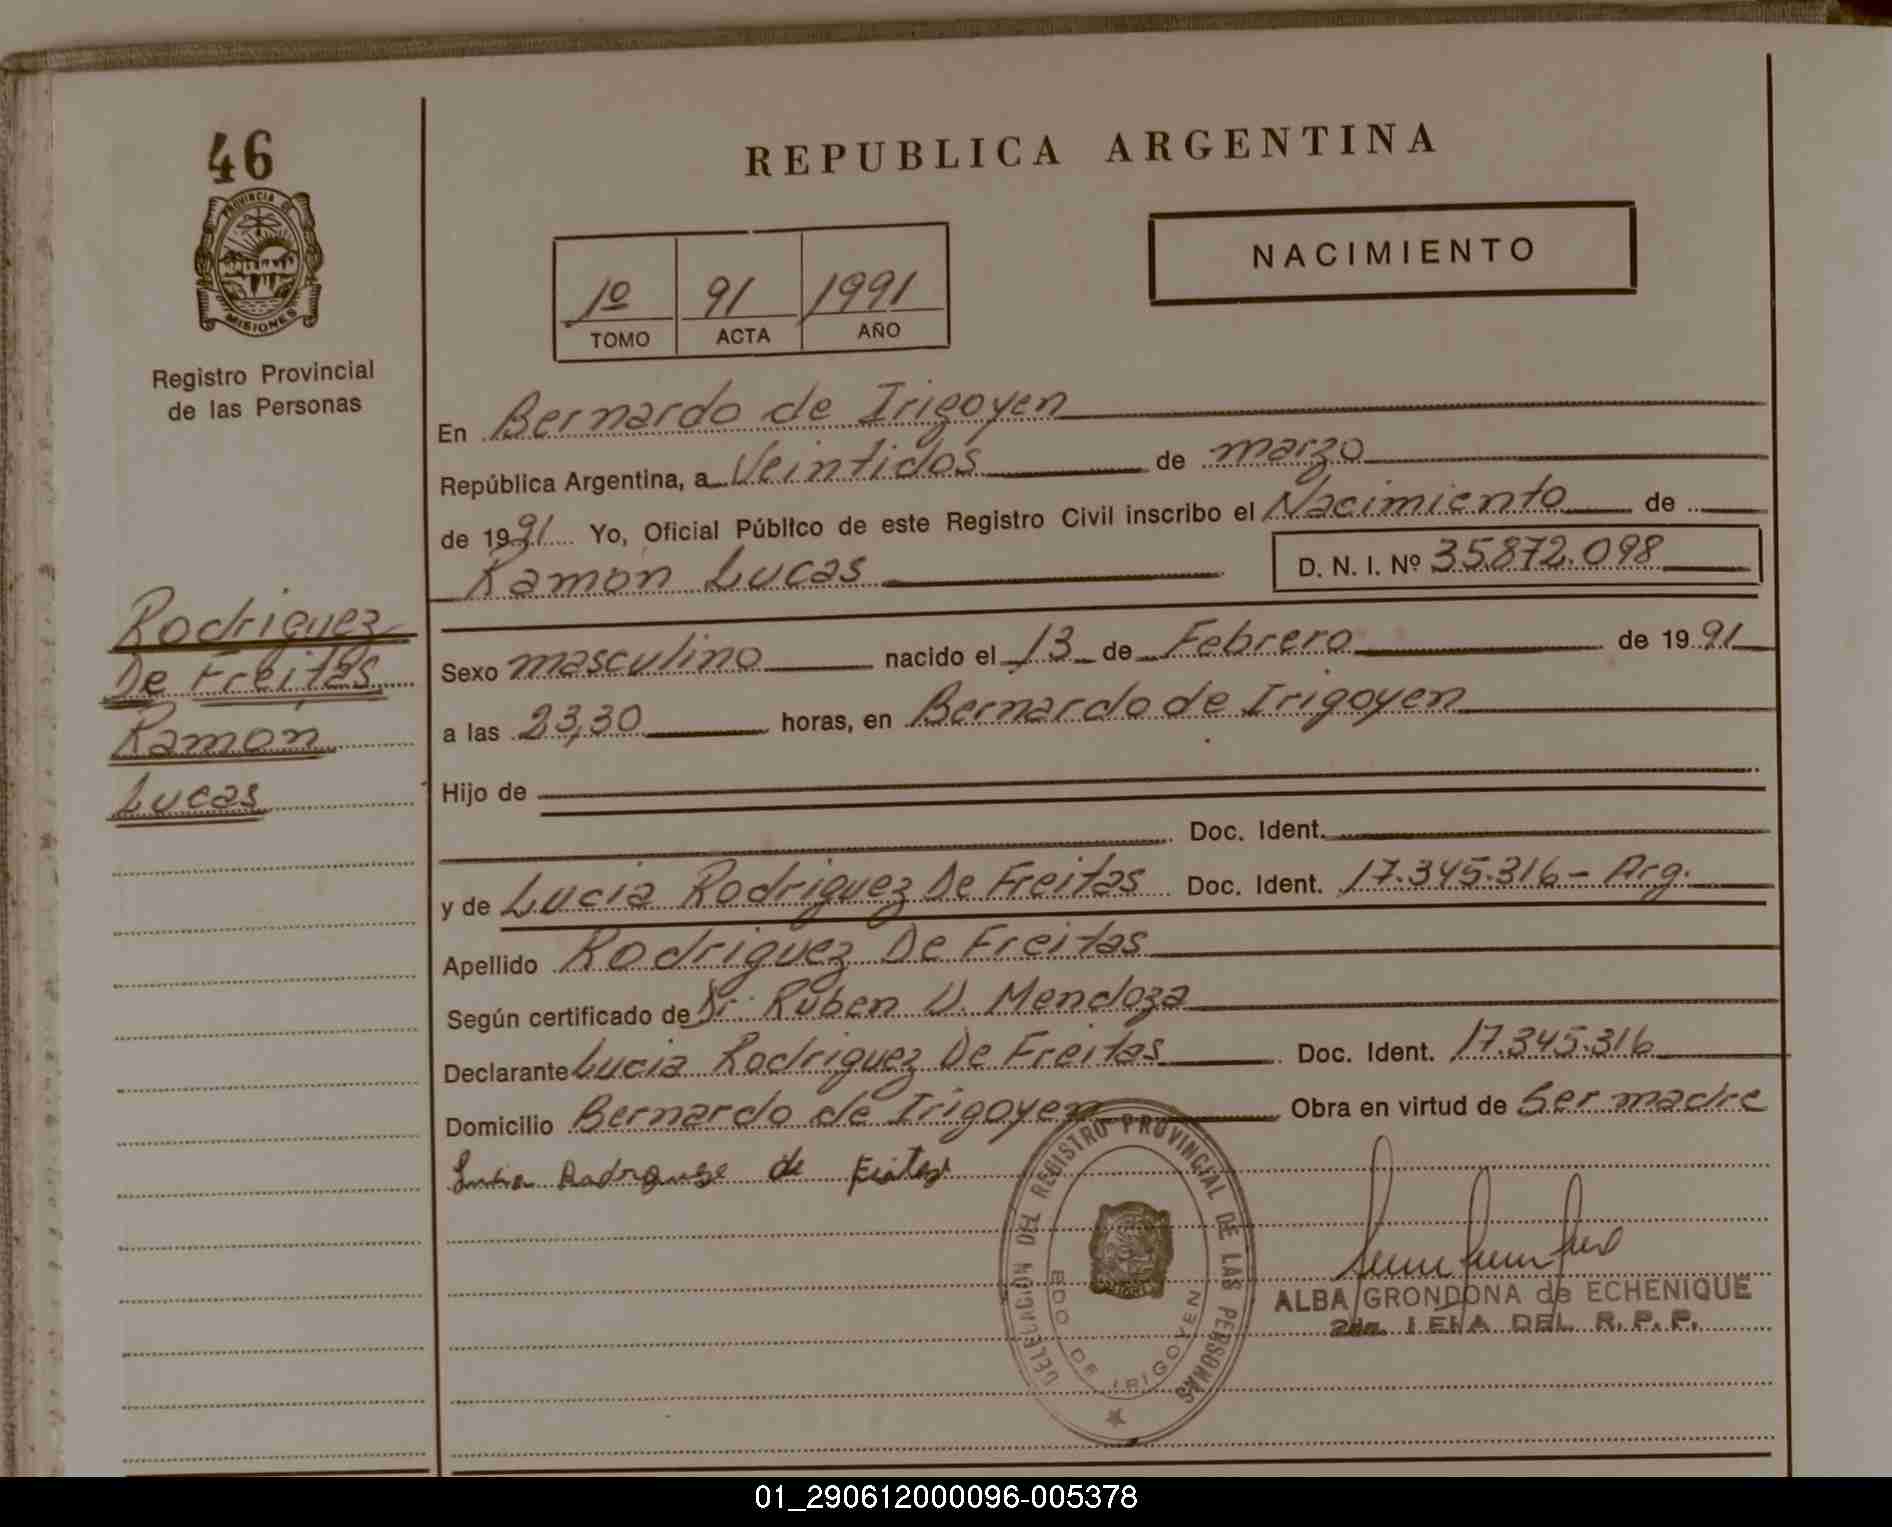 46
PROVINCIA DE
MISIONES
Registro Provincial
de las Personas
Rodriguez
De Freitas
Ramon
Lucas
REPUBLICA ARGENTINA
1º 91 1991
TOMO ACTA AÑO
NACIMIENTO
En Bernardo de Irigoyen
República Argentina, a Veintidos de marzo
de 1991 Yo, Oficial Público de este Registro Civil inscribo el Nacimiento de
Ramon Lucas D. N. I. Nº 35872.098
Sexo masculino nacido el 13 de Febrero de 1991
a las 23,30 horas, en Bernardo de Irigoyen
Hijo de
Doc. Ident.
y de Lucia Rodriguez De Freitas Doc. Ident. 17.345.316 - Arg.
Apellido Rodriguez De Freitas
Según certificado de Dr. Ruben D. Mendoza
Declarante Lucia Rodriguez De Freitas Doc. Ident. 17.345.316
Domicilio Bernardo de Irigoyen Obra en virtud de Ser madre
de
DELEGACION DEL REGISTRO PROVINCIAL DE LAS PERSONAS
BDO DE IRIGOYEN
ALBA GRONDONA de ECHENIQUE
DEL R. P. P.
01_290612000096-005378